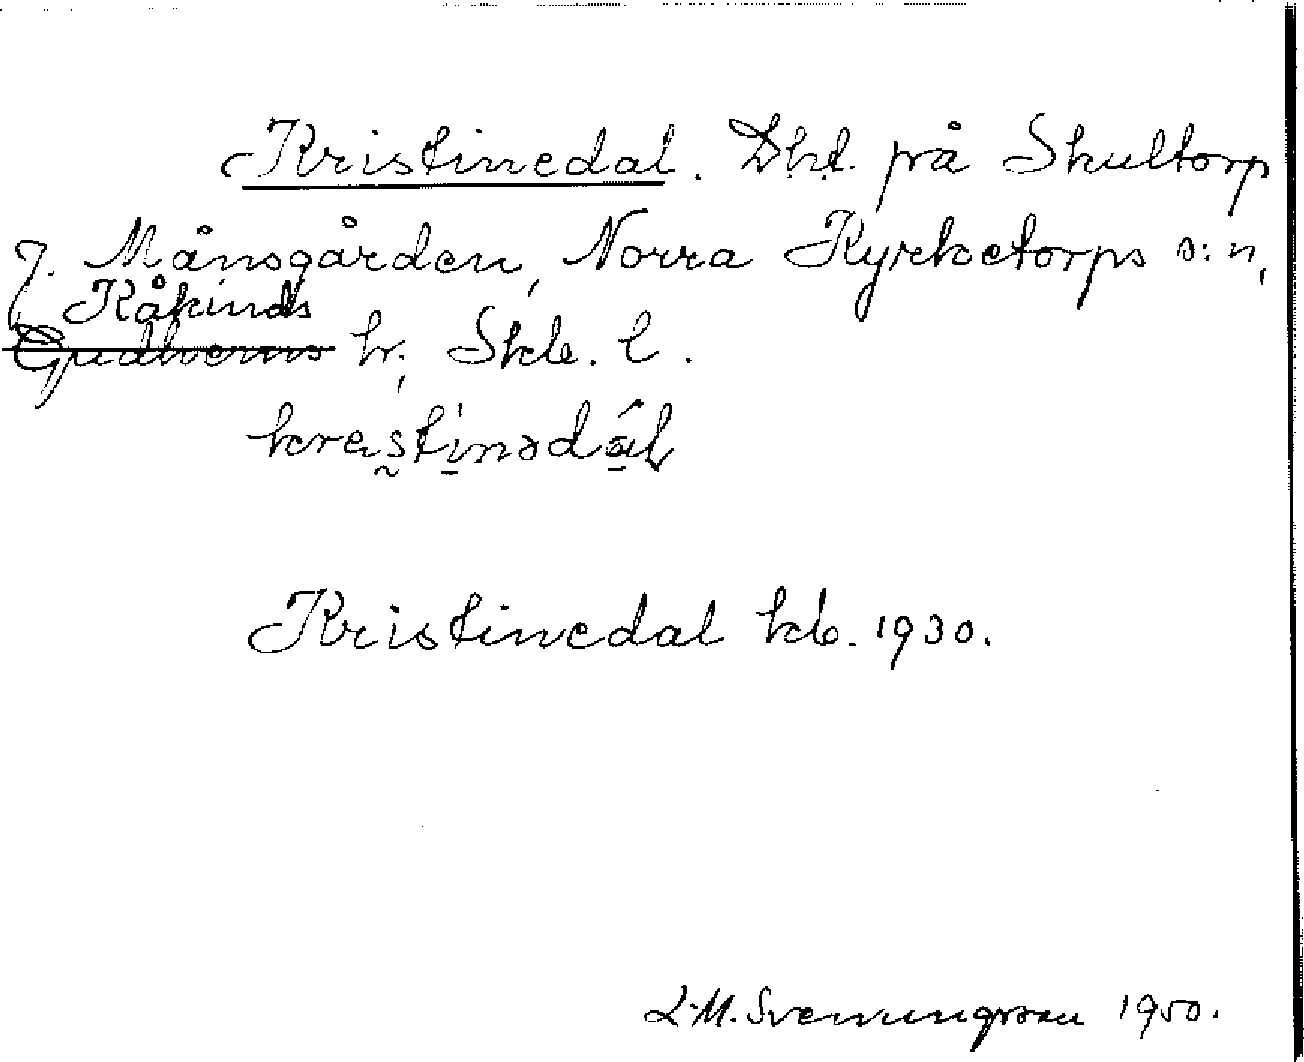 Kristinedal. Lht. på Skultorp
7. Månsgården, Norra Kyrketorps s:n,
Kåkinds
Gudhems hr. Skb. l.
Kristinedal kb. 1930.
L-M. Svenungsson 1950.